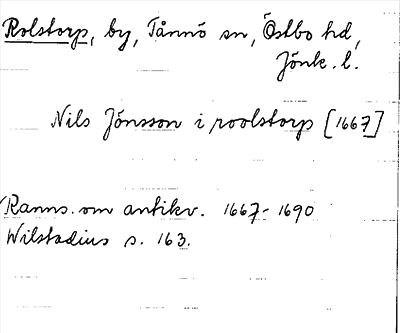 Rolstorp, by, Tånnö sn, Östbo hd,
Jönk. l.
Nils Jönsson i roolstorp [1667]
Ranns. om antikv. 1667-1690
Wilstadius s. 163.